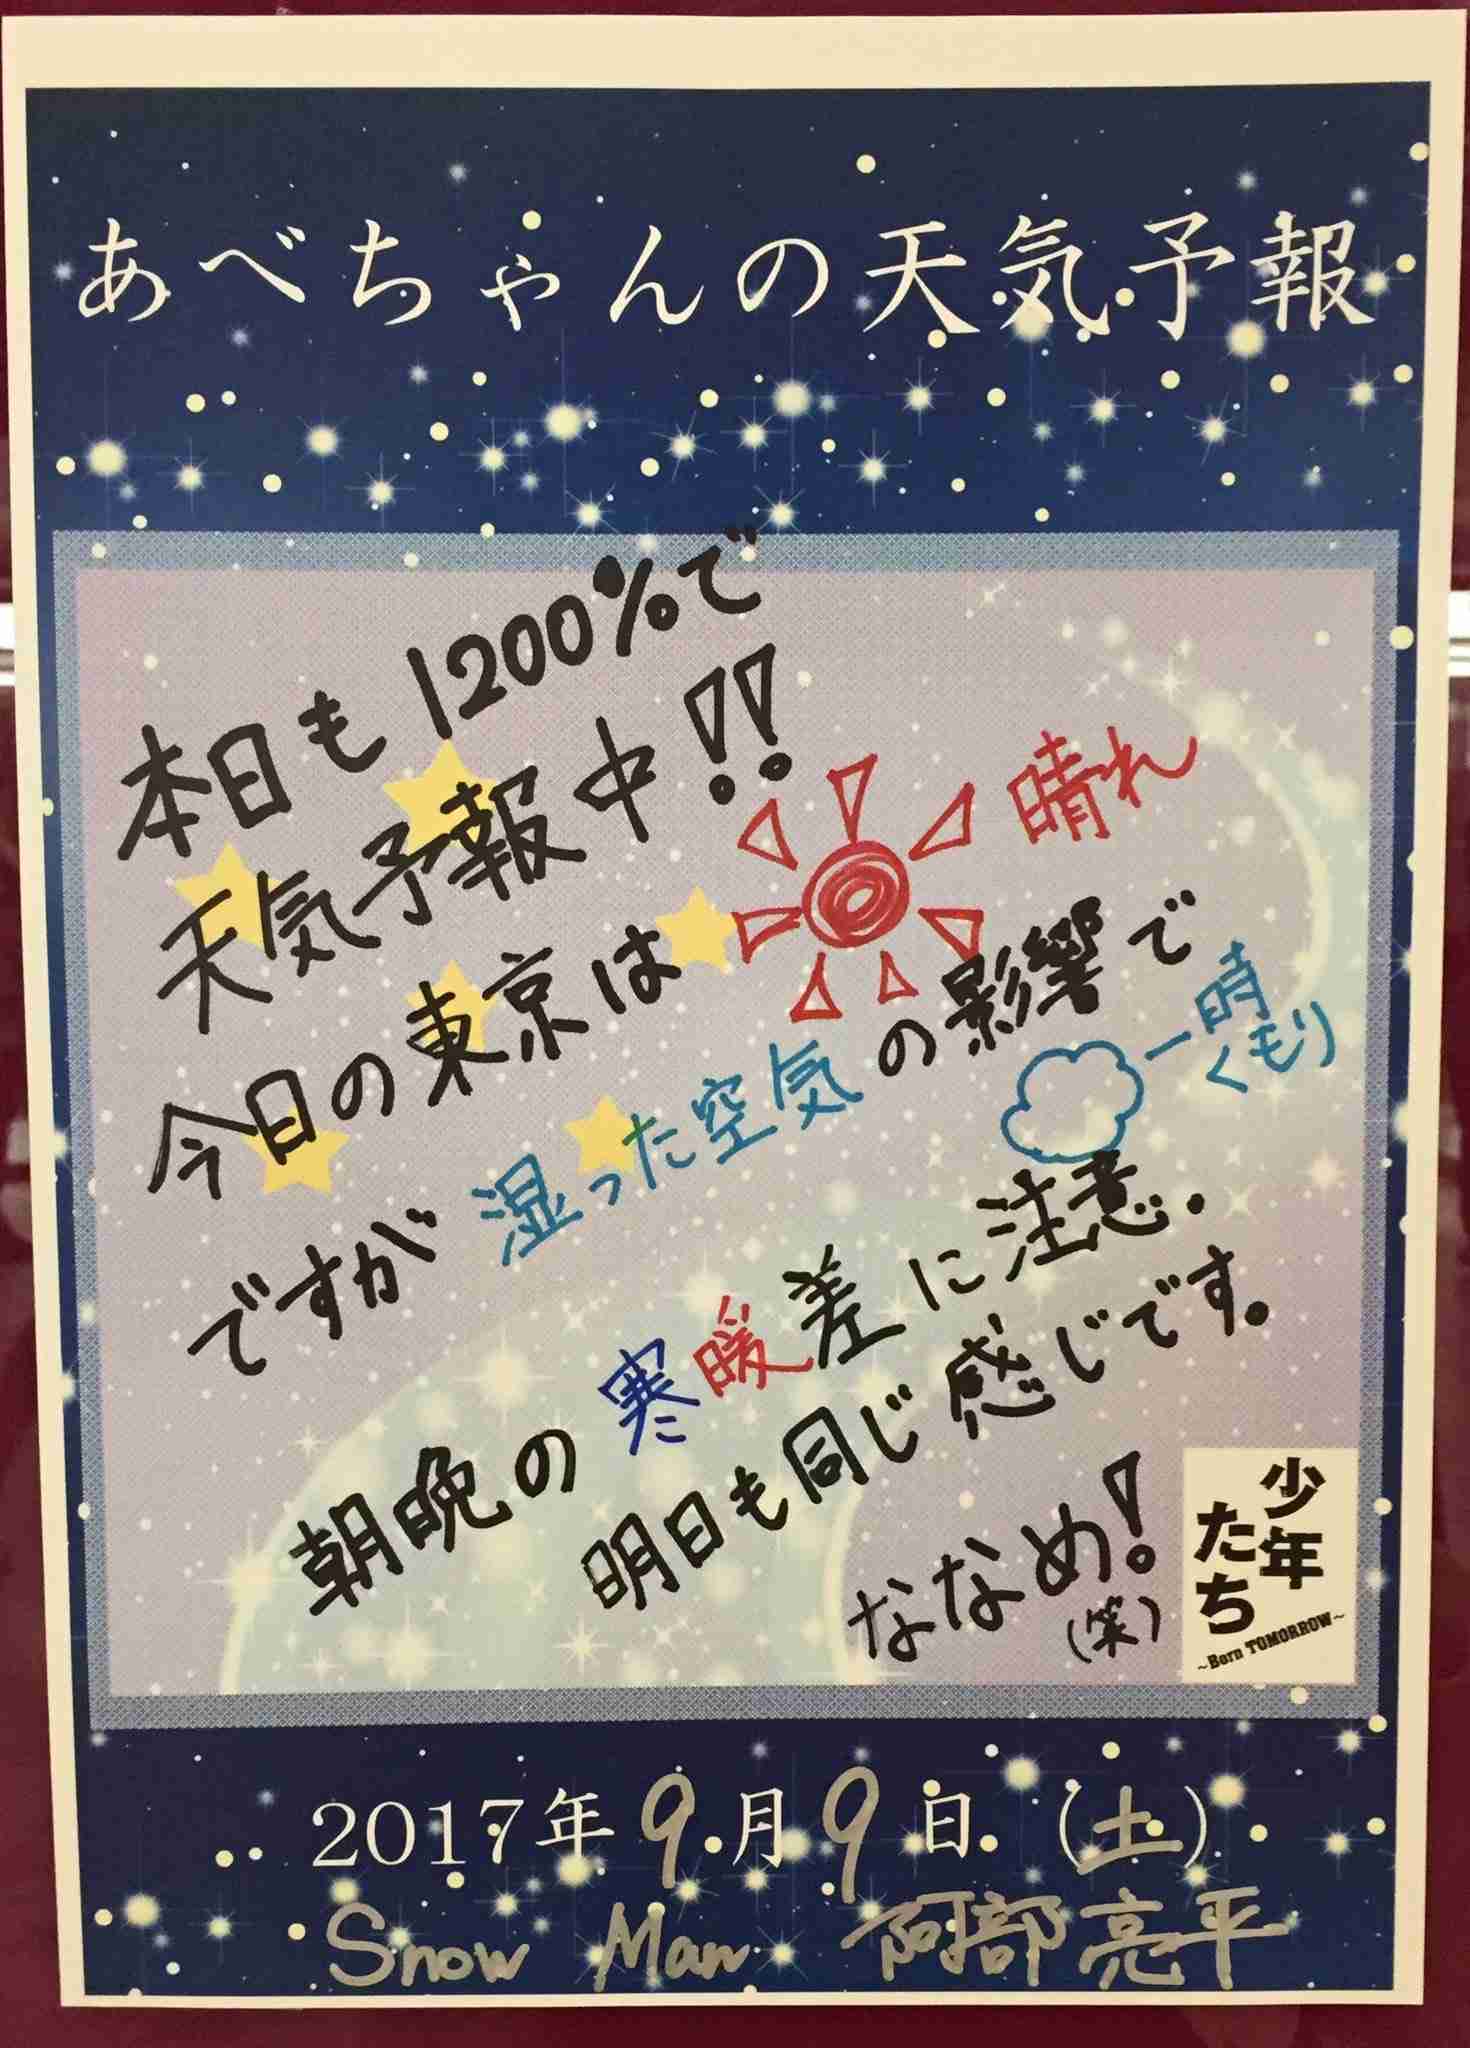 あべちゃんの天気予報
本日も1200%で
天気予報中!!
今日の東京は 晴れ
ですが 湿った空気の影響で
一時
くもり
朝晩の寒暖差に注意.
明日も同じ感じです。
ななめ!
(笑)
少年
たち
~Born TOMORROW~
2017年9月9日(土)
Snow Man 阿部亮平